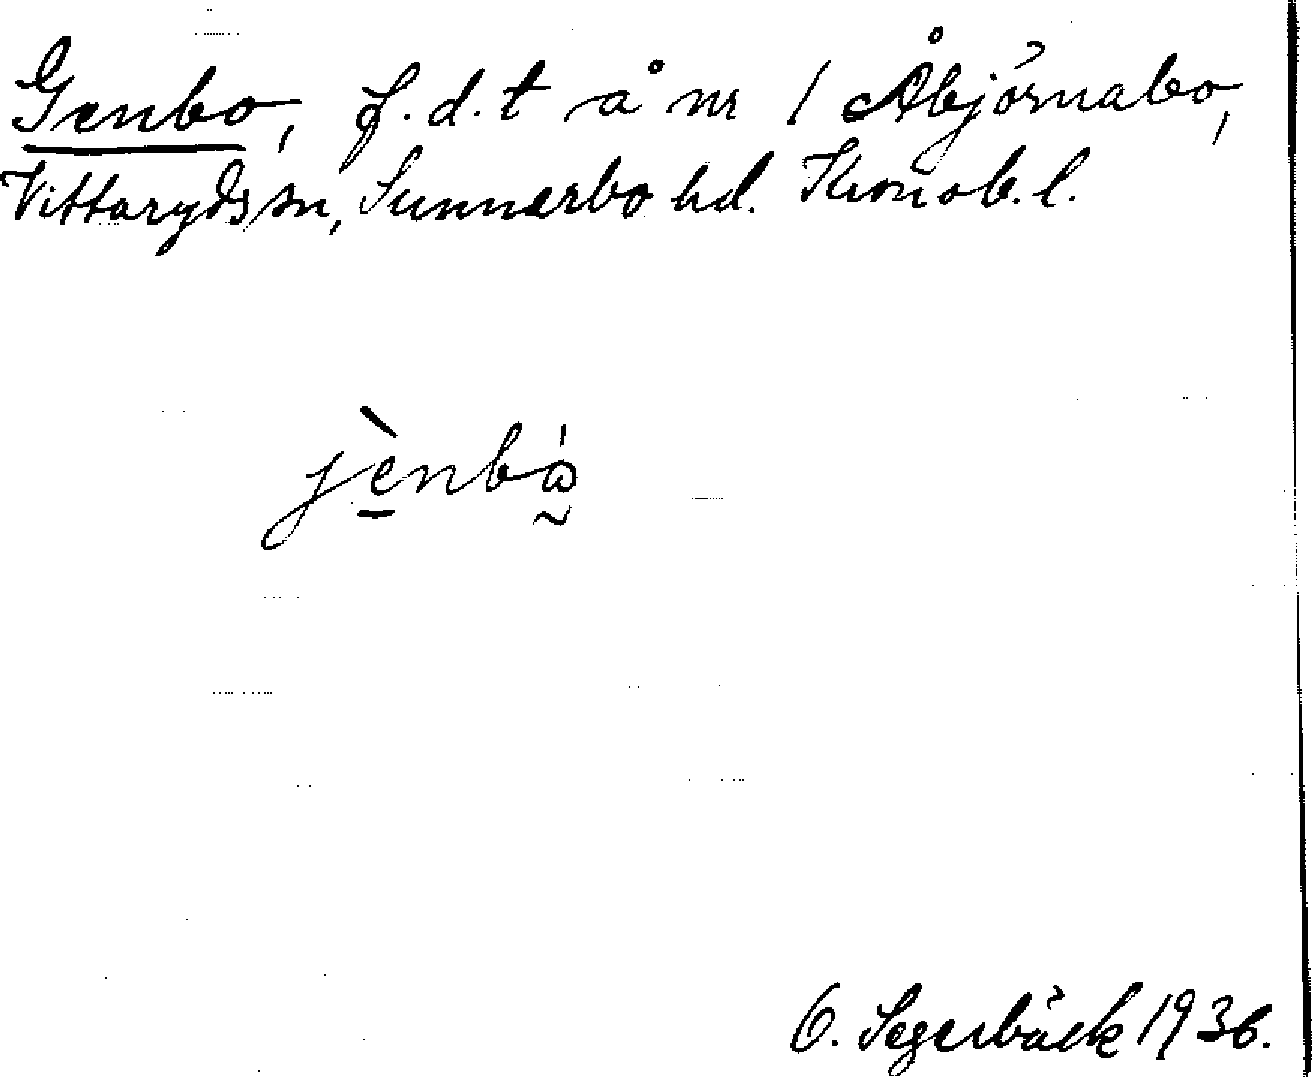 Genbo, f.d.t å nr 1 Åbjörnabo,
Vittaryds sn, Sunnerbo hd. Kronob.l.
jènbó
O. Segerbäck 1936.